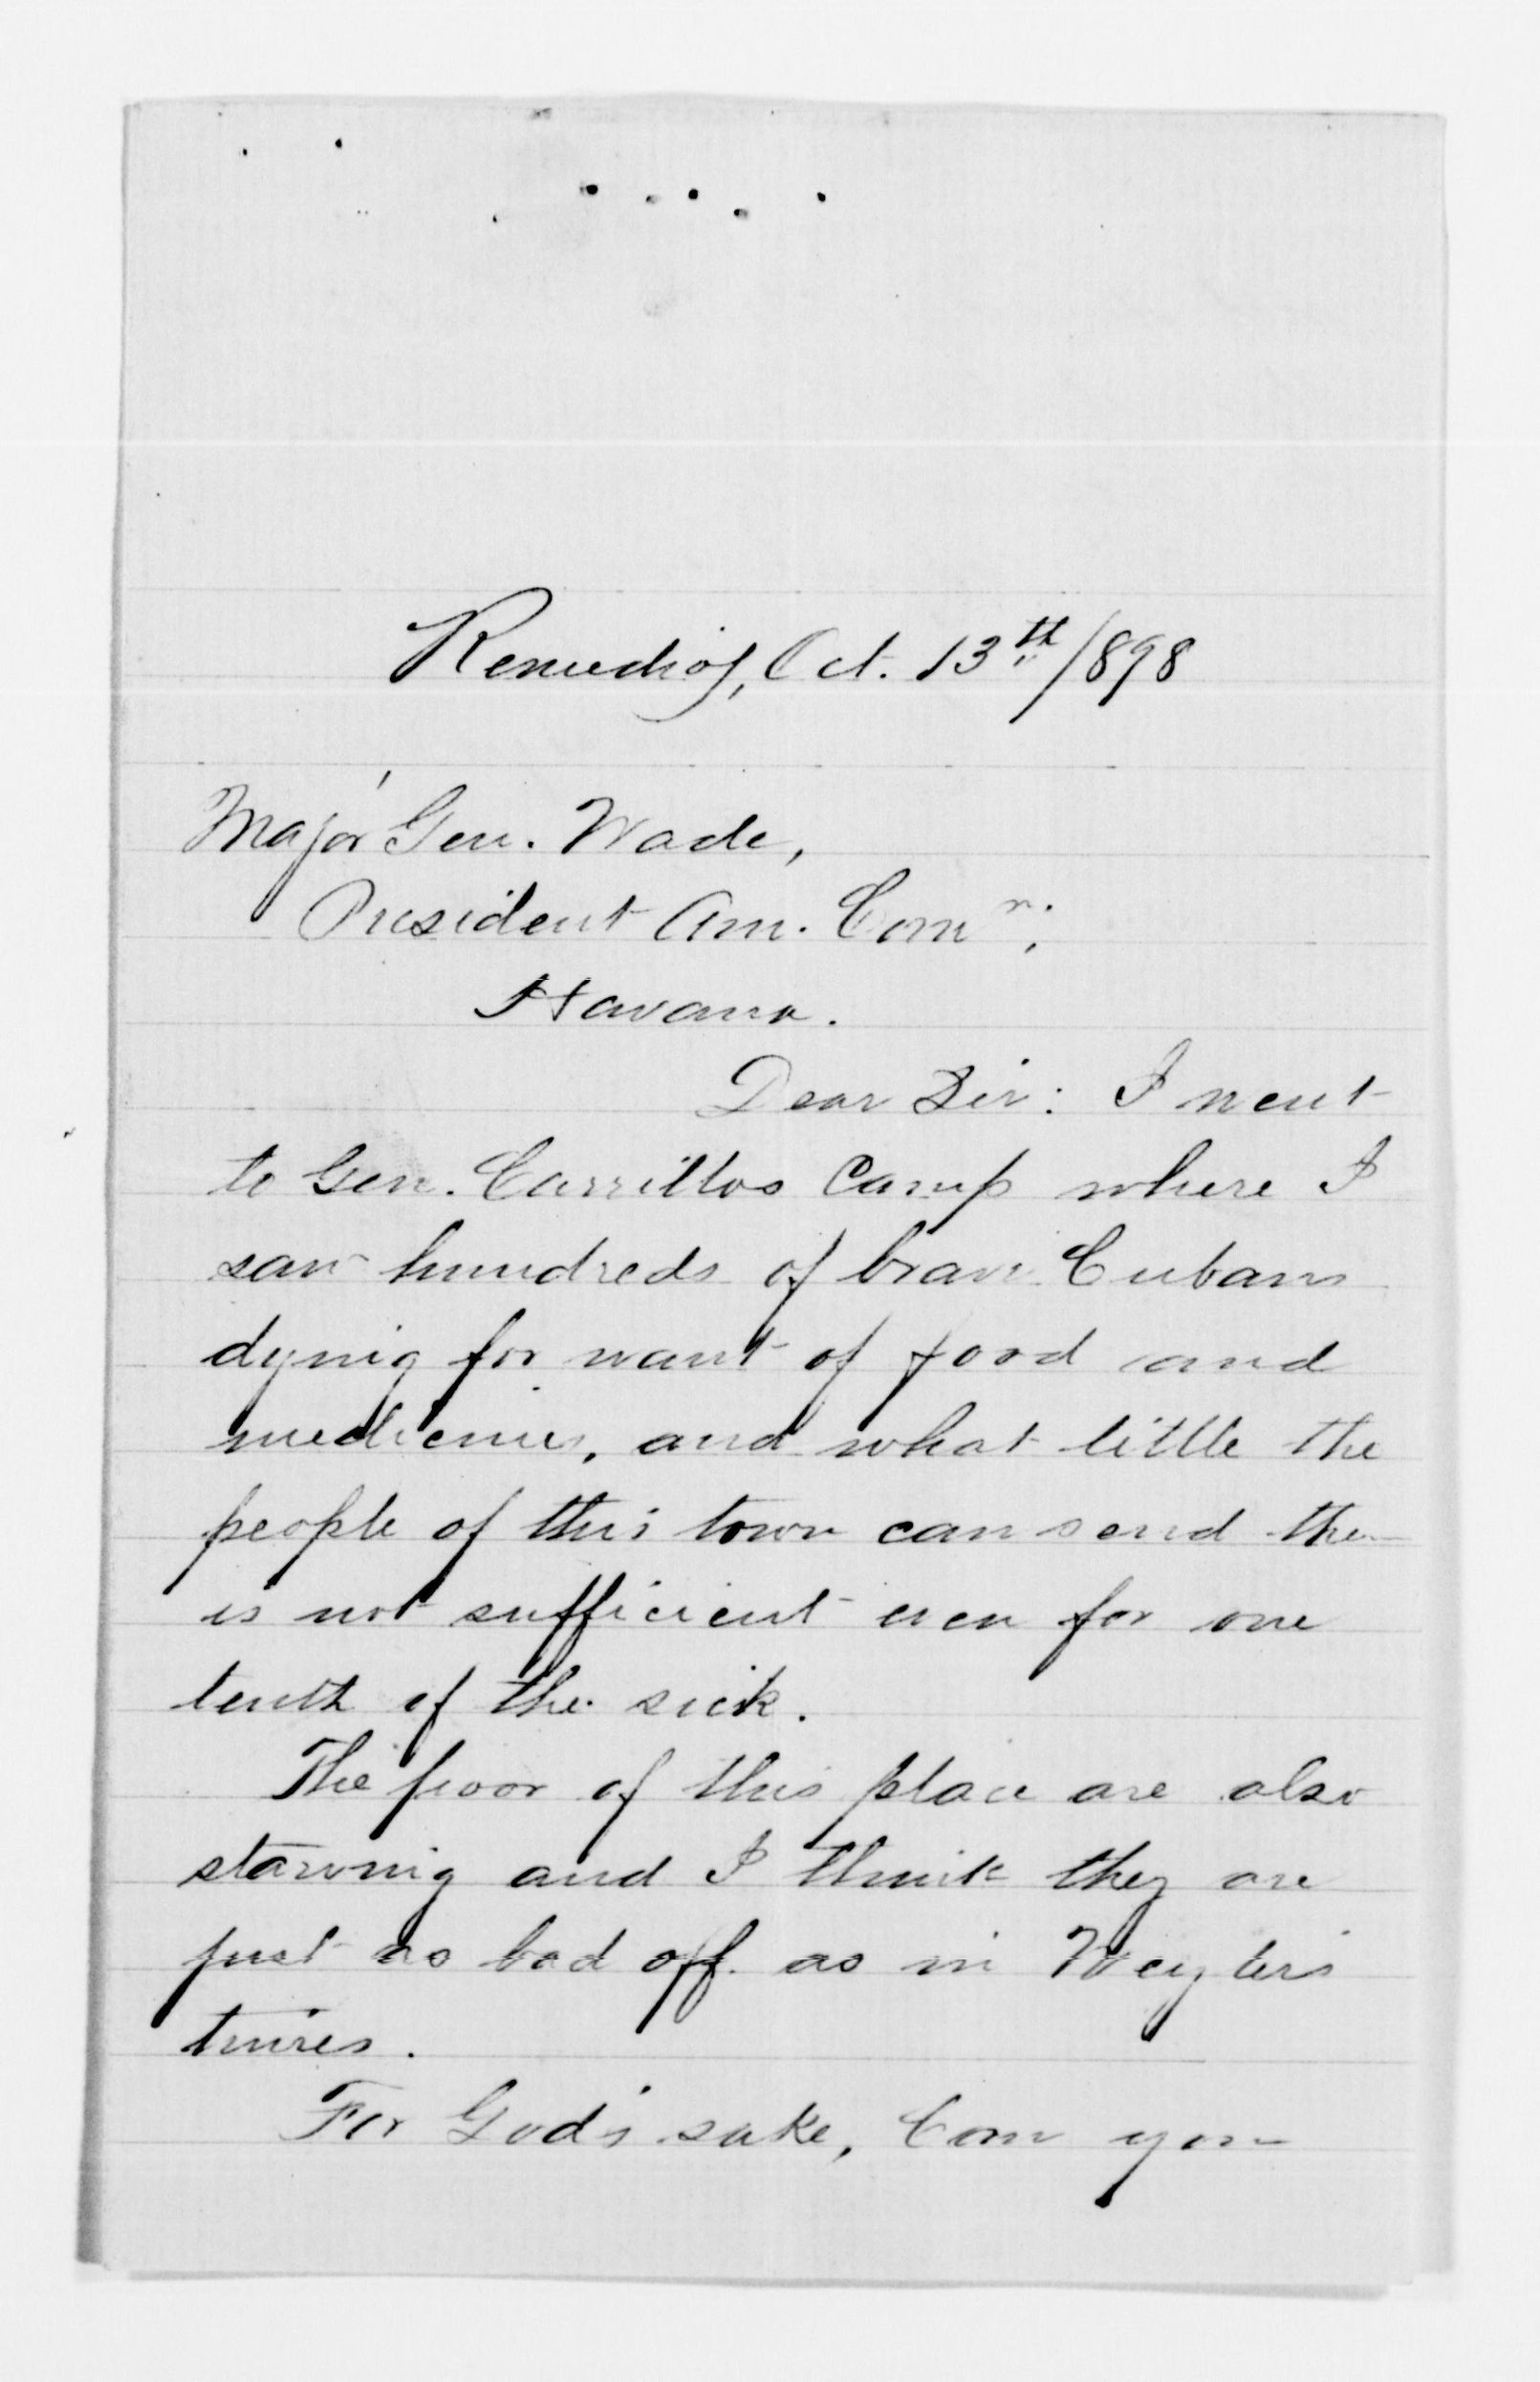 Remedios, Oct. 13th/898
Major Gen. Wade,
President Am. Comn;
Havana.
Dear Sir: I went
to Gen. Carrillos Camp where I
saw hundreds of brave Cubans
dying for want of food and
medicines, and what little the
people of this town can send them
is not sufficient even for one
tenth of the sick.
The poor of this place are also
starving and I think they are
just as bad off as in Weyler's
times.
For God's sake, Can you